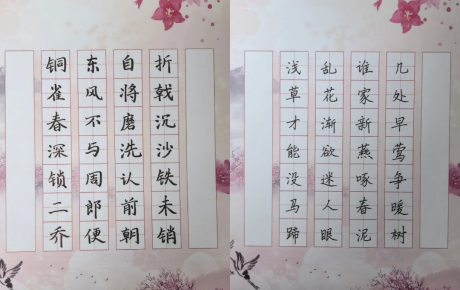 折戟沉沙铁未销
自将磨洗认前朝
东风不与周郎便
铜雀春深锁二乔
几处早莺争暖树
谁家新燕啄春泥
乱花渐欲迷人眼
浅草才能没马蹄